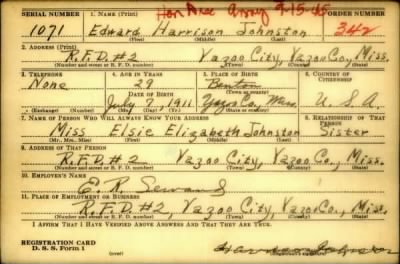 Hon Disc Army 9-15-45
SERIAL NUMBER 1. NAME (Print) ORDER NUMBER
1071 Edward Harrison Johnston 342
(First) (Middle) (Last)
2. ADDRESS (Print)
R.F.D.#2 Yazoo City, Yazoo Co., Miss.
(Number and street or R. F. D. number) (Town) (County) (State)
3. TELEPHONE 4. AGE IN YEARS 5. PLACE OF BIRTH 6. COUNTRY OF CITIZENSHIP
None 29 Benton
DATE OF BIRTH
July 7, 1911 Yazoo Co., Miss. U.S.A.
(Exchange) (Number) (Mo.) (Day) (Yr.) (State or country)
7. NAME OF PERSON WHO WILL ALWAYS KNOW YOUR ADDRESS 8. RELATIONSHIP OF THAT PERSON
Miss Elsie Elizabeth Johnston Sister
(Mr., Mrs., Miss) (First) (Middle) (Last)
9. ADDRESS OF THAT PERSON
R.F.D.#2 Yazoo City, Yazoo Co., Miss.
(Number and street or R. F. D. number) (Town) (County) (State)
10. EMPLOYER'S NAME
E. R.
11. PLACE OF EMPLOYMENT OR BUSINESS
R.F.D.#2, Yazoo City, Yazoo Co., Miss.
(Number and street or R. F. D. number) (Town) (County) (State)
I AFFIRM THAT I HAVE VERIFIED ABOVE ANSWERS AND THAT THEY ARE TRUE.
REGISTRATION CARD
D. S. S. Form 1 (over) Harrison Johnston